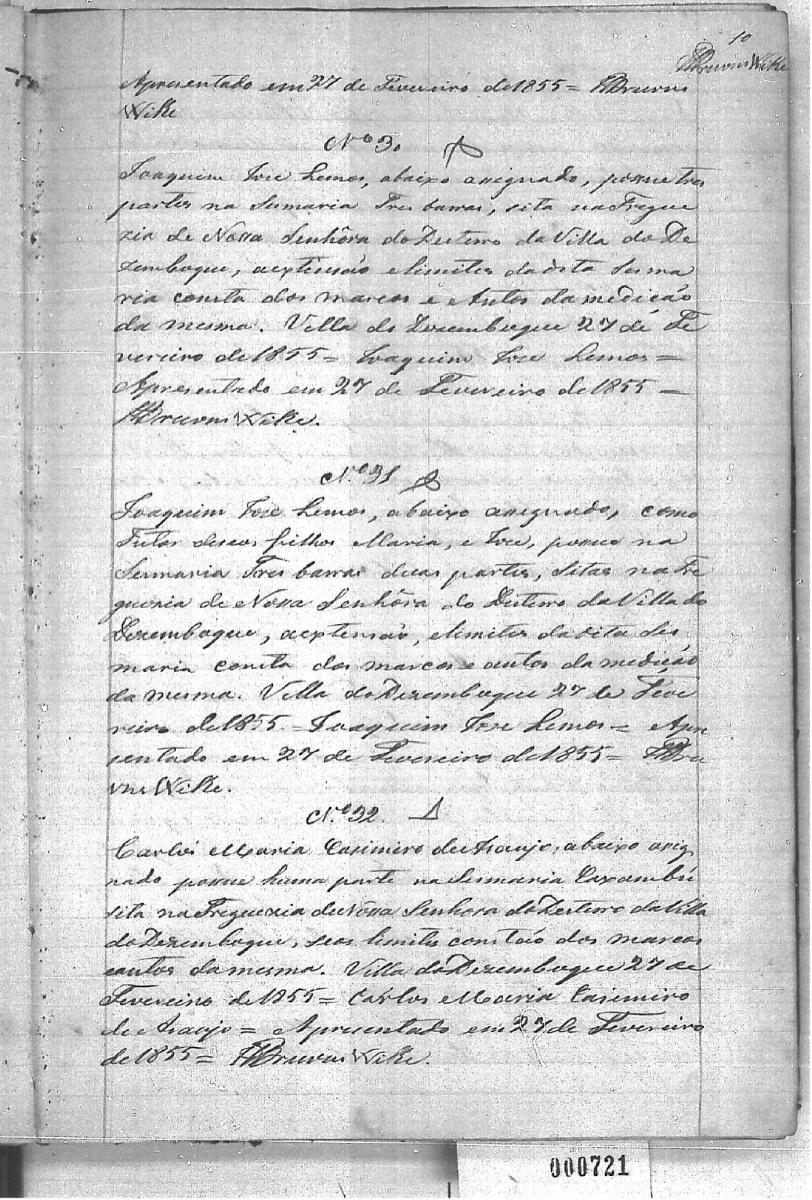 10
Bruvns Wike
Apresentado em 27 de Fevereiro de 1855 = Bruvns
Wike
Nº 30
Joaquim Jose Lemos, abaixo asignado, posue tres
partes na Sismaria Tres barras, sita na Fregue
zia de Nossa Senhôra do Desterro da Villa do De
zemboque, aextensaõ elimites da dita Sesma
ria consta dos marcos e Autos da mediçaõ
da mesma. Villa do Dezemboque 27 de Fe
vereiro de 1855 = Joaquim Jose Lemos =
Apresentado em 27 de Fevereiro de 1855 =
Bruvns Wike.
Nº 31
Joaquim Jose Lemos, abaixo asignado, como
Tutor deseos filhos Maria, e Jose, posue na
Sesmaria Tres barras duas partes, sitas na Fre
guezia de Nossa Senhôra do Desterro da Villa do
Dezemboque, aextensaõ, elimites da dita Ses
maria consta dos marcos e autos da mediçaõ
da mesma. Villa do Dezemboque 27 de Feve
reiro de 1855 = Joaquim Jose Lemos = Apre
sentado em 27 de Fevereiro de 1855 = Bru
vns Wike.
Nº 32.
Carlos Maria Casimiro de Araujo, abaixo asig
nado posue huma parte na Sesmaria Caxambú
sita na Freguezia de Nossa Senhora do Desterro da Villa
do Dezemboque, seos limites constaõ dos marcos
eautos da mesma. Villa do Dezemboque 27 de
Fevereiro de 1855 = Carlos Maria Casimiro
de Araujo = Apresentado em 27 de Fevereiro
de 1855 = Bruvns Wike.
000721